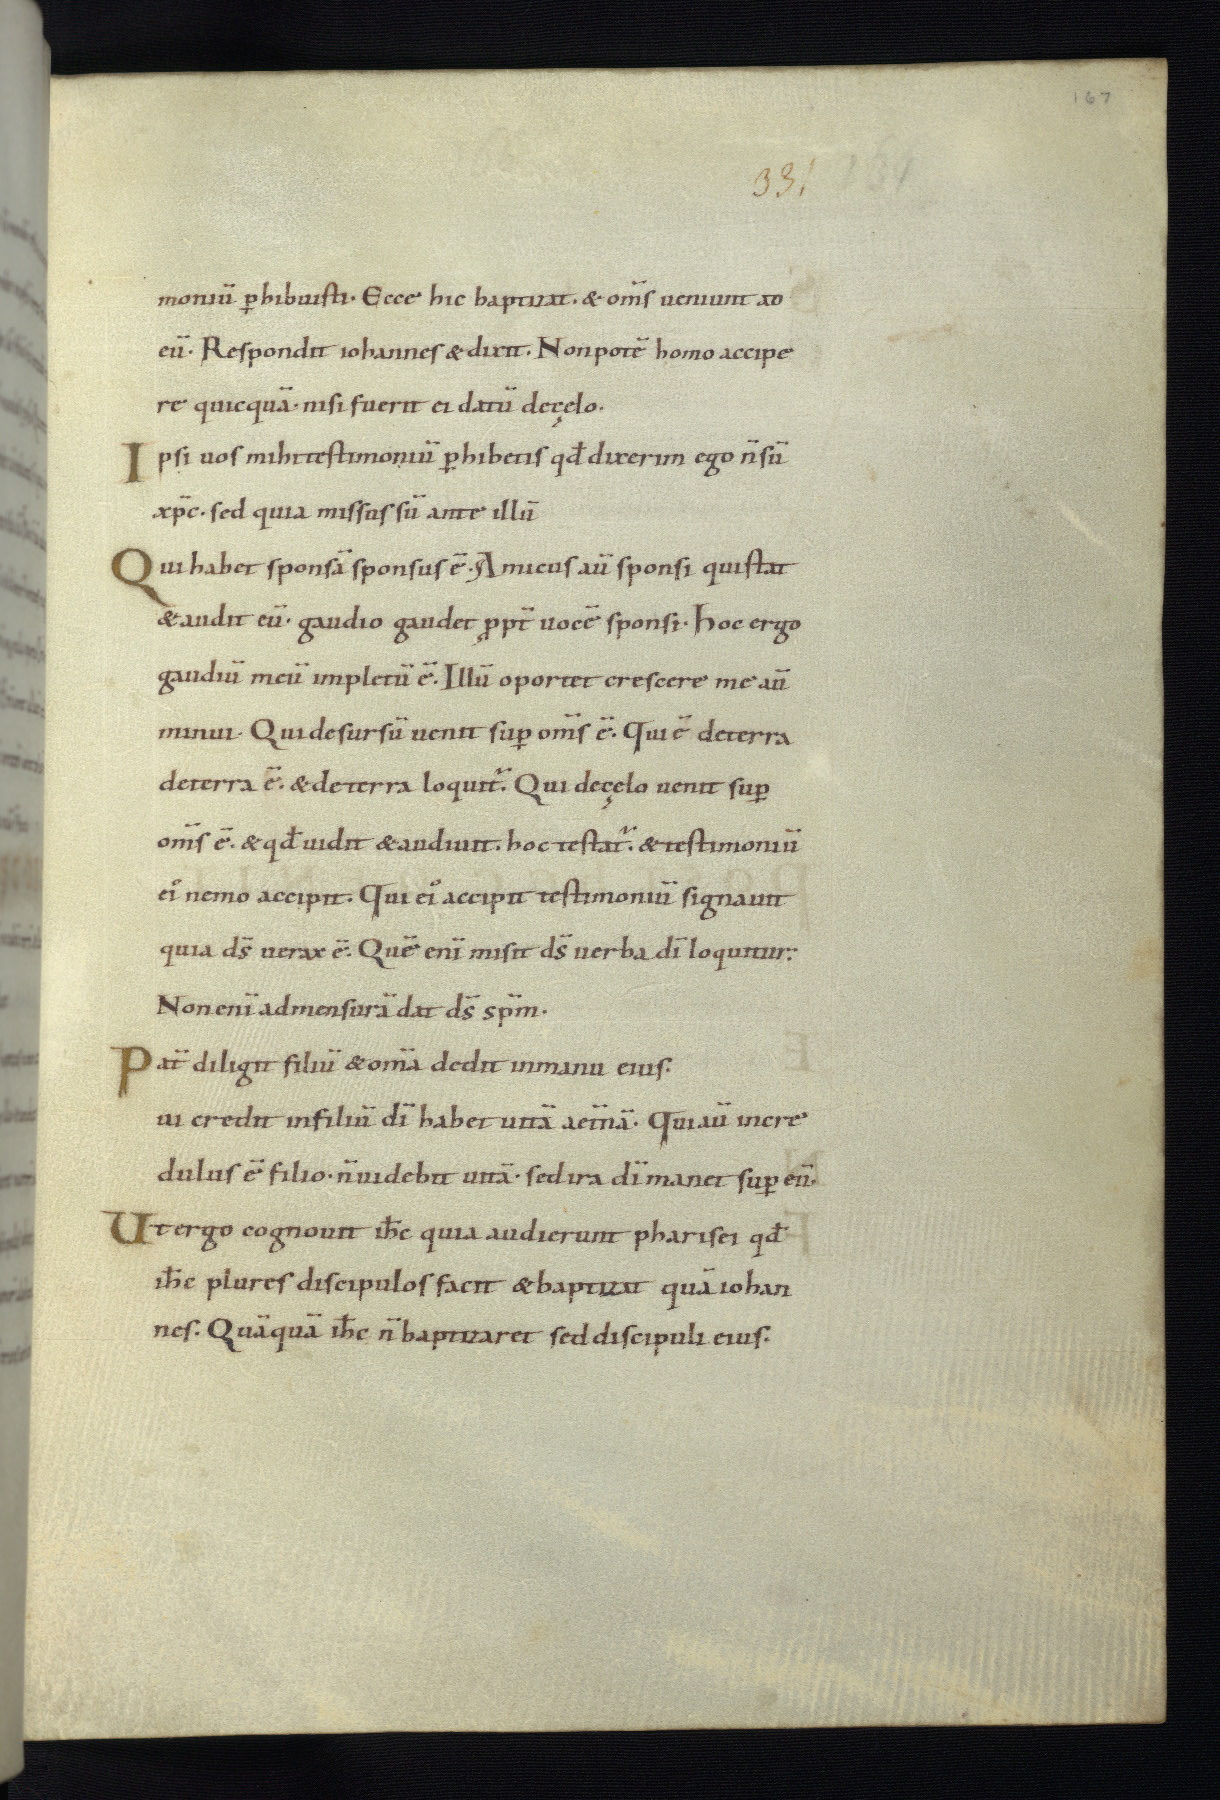 167
331
moniū ꝑhibuisti· Ecce hic baptizat· & om̄s ueniunt ad
eū· Respondit iohannes & dixit· Non potē homo accipe
re quicquā· nisi fuerit ei datū de cęlo·
Ipsi uos mihi testimoniū ꝑhibetis qđ dixerim ego n̄ sū
xp̄c· sed quia missus sū ante illū
Qui habet sponsā sponsus ē· Amicus aū sponsi qui stat
& audit eū· gaudio gaudet ꝓpt̄ uocē sponsi· Hoc ergo
gaudiū meū impletū ē· Illū oportet crescere me aū
minui· Qui desursū uenit suꝑ om̄s ē· Qui ē de terra
de terra ē· & de terra loquit̄· Qui de cęlo uenit suꝑ
om̄s ē· & qđ uidit & audiuit· hoc testat̄· & testimoniū
ei᷒ nemo accipit· Qui ei᷒ accipit testimoniū signauit
quia ds̄ uerax ē· Quē enī misit ds̄ uerba dī loquitur·
Non enī ad mensurā dat ds̄ sp̄m·
Pat̄ diligit filiū & om̄a dedit in manu eius·
ui credit in filiū dī habet uitā aet̄nā· Qui aū incre
dulus ē filio· n̄ uidebit uitā· sed ira dī manet suꝑ eū·
Ut ergo cognouit ih̄c quia audierunt pharisei qđ
ih̄c plures discipulos facit & baptizat quā iohan
nes· Quāquā ih̄c n̄ baptizaret sed discipuli eius·